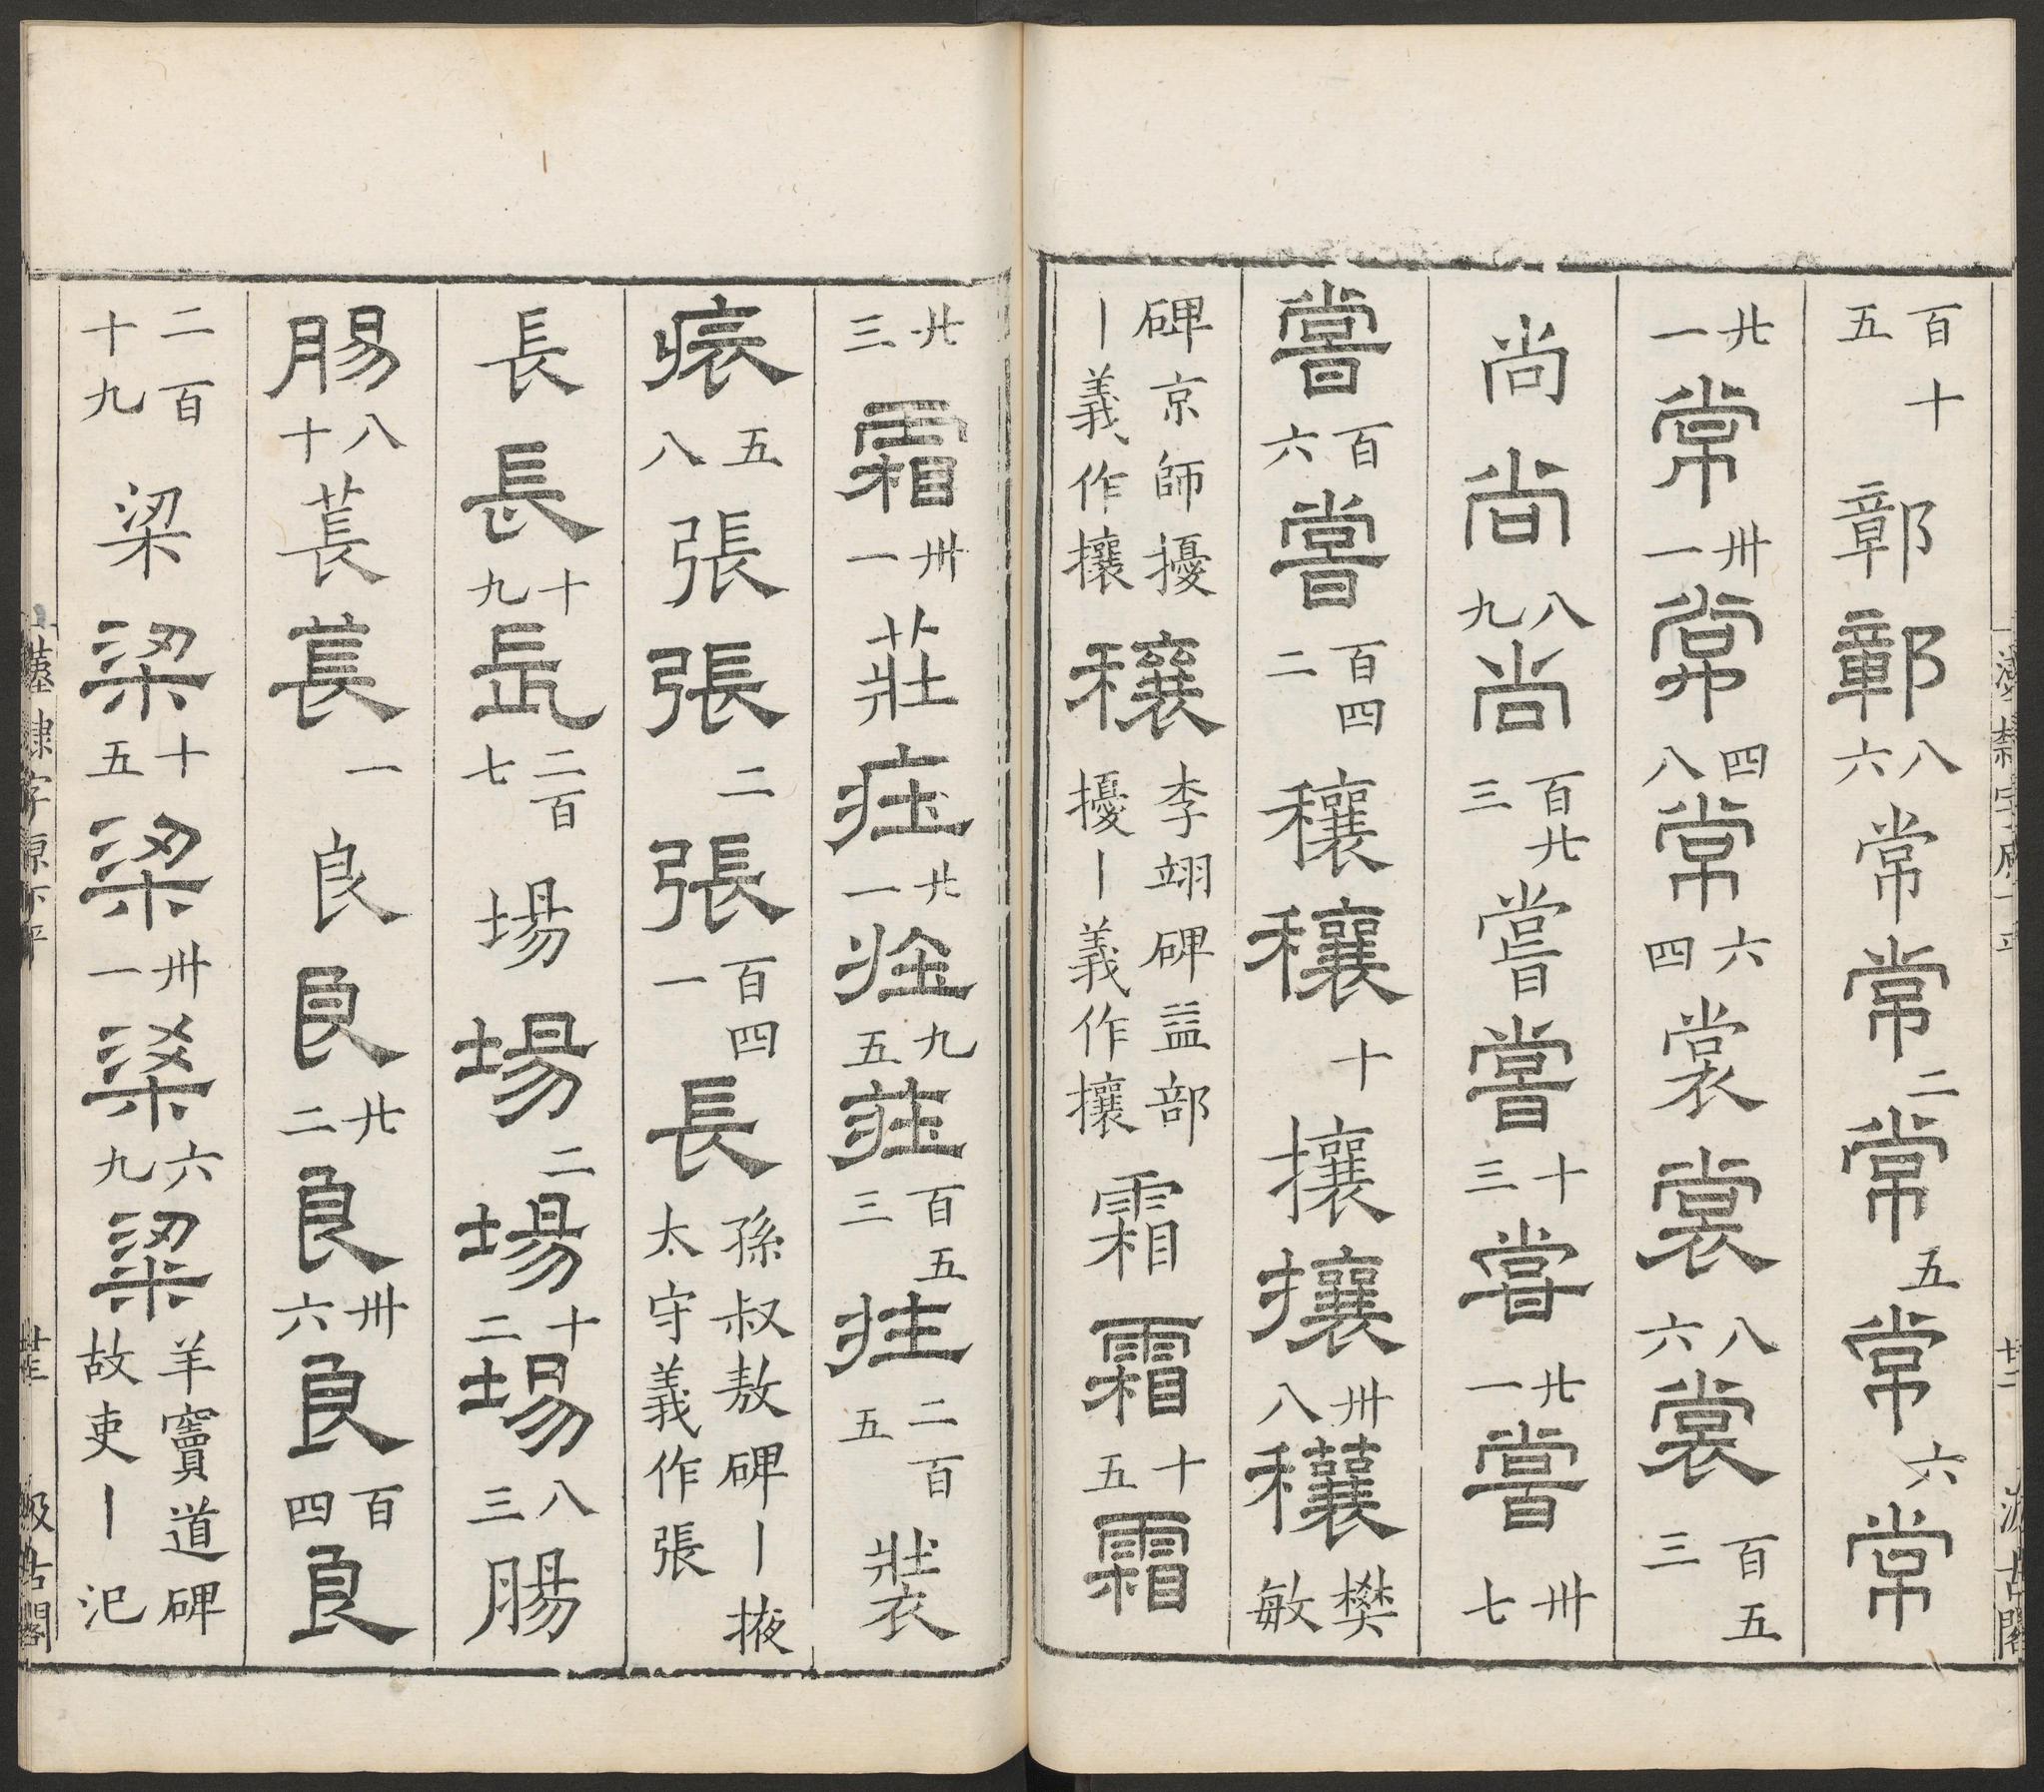 百十五鄣鄣八六常常二常五常六常
廿一常卅一常四八常六四裳裳八六裳百五三
尚尚八九尚百廿三嘗嘗十三嘗廿一嘗卅七
嘗百六嘗百四二穰穰十攘攘卅八穰樊敏
碑京師擾丨義作攘穰李翊碑益部擾丨義作攘霜霜十五霜
廿三霜卅一莊莊廿一莊九五莊百五三莊二百五裝
裝五八張張二張百四一長孫叔敖碑丨掖太守義作張
長長十九長二百七場場二場十二場八三腸
腸八十萇萇一良良廿二良卅六良百四良
二百十九梁梁十五梁卅一梁六九梁羊竇道碑故吏丨汜
漢隸字源下平
汲古閣
漢隸字源下平
汲古閣